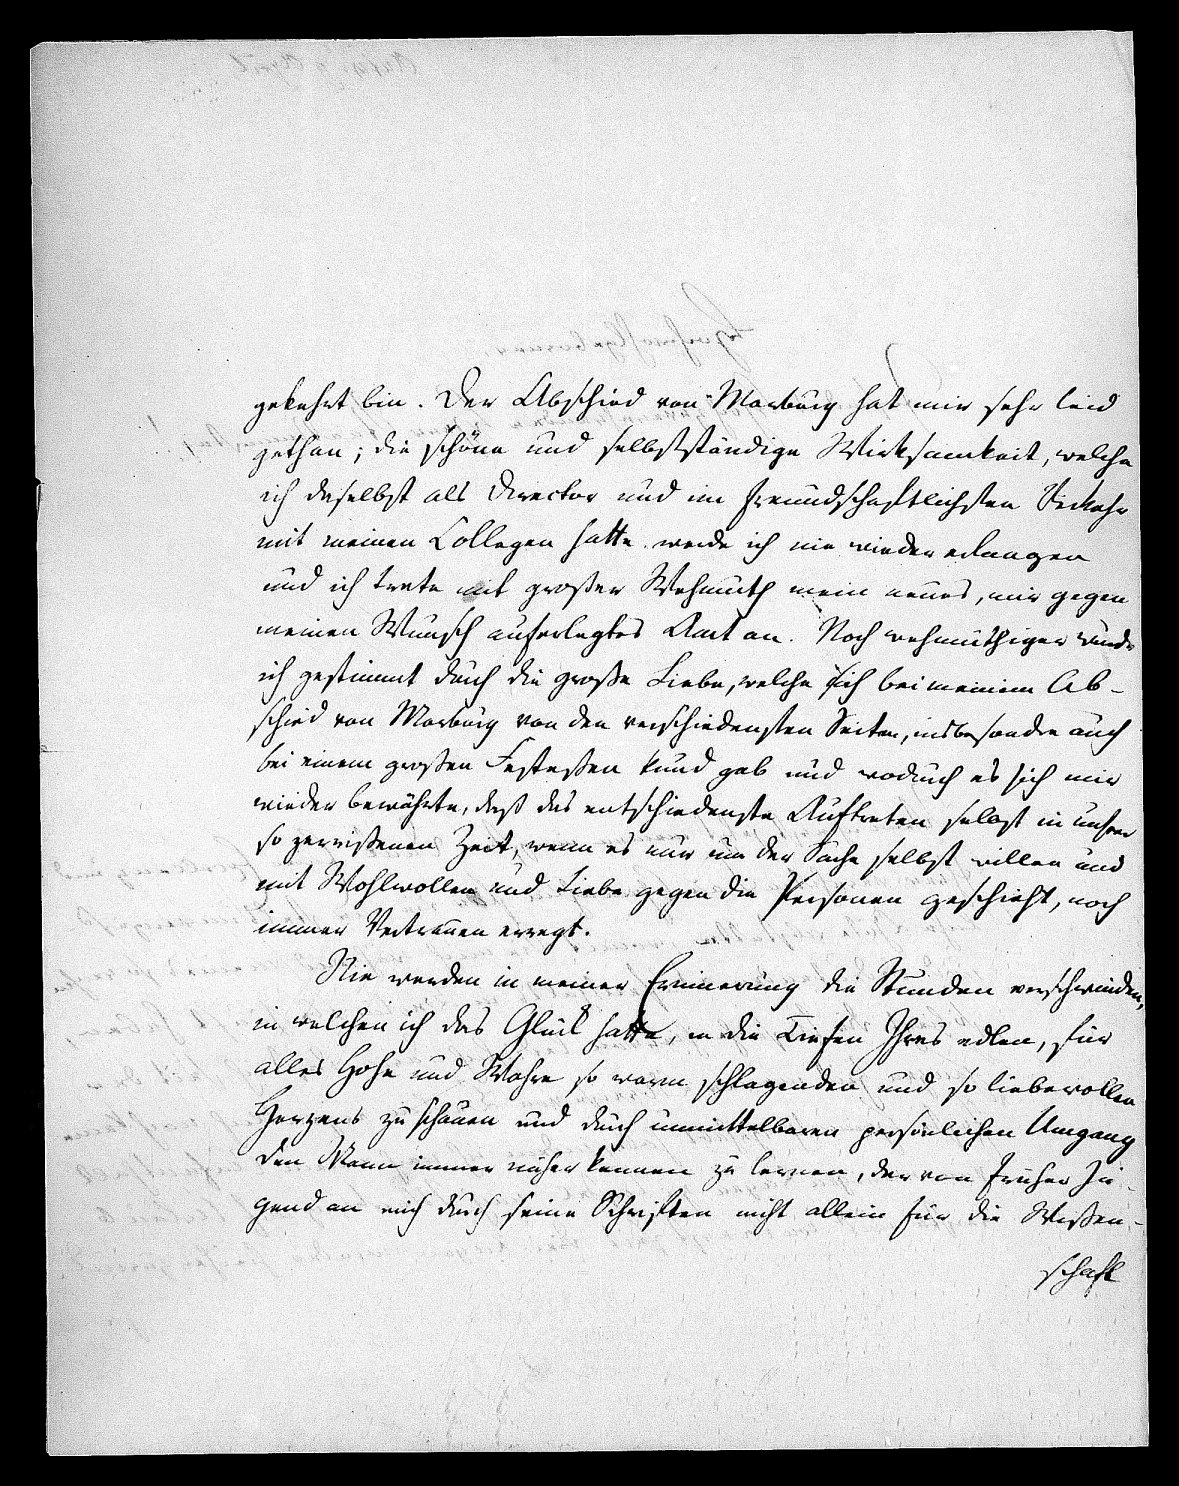 gekehrt bin. Der Abschied von Marburg hat mir sehr leid
gethan; die schöne und selbstständige Wirksamkeit, welche
ich daselbst als Director und im freundschaftlichsten Verkehr
mit meinen Collegen hatte werde ich nie wieder erlangen
und ich trete mit großer Wehmuth mein neues, mir gegen
meinen Wunsch auferlegtes Amt an. Noch wehmüthiger wurde
ich gestimmt durch die große Liebe, welche sich bei meinem Ab-
schied von Marburg von den verschiedensten Seiten, insbesondre auch
bei einem großen Festeßen kund gab und wodurch es sich mir
wieder bewährte, daß das entschiedenste Auftreten selbst in unsrer
so zerrißenen Zeit, wenn es nur um der Sache selbst willen und
mit Wohlwollen und Liebe gegen die Personen geschieht, noch
immer Vertrauen erregt.
Nie werden in meiner Erinnerung die Stunden verschwinden,
in welchen ich das Glück hatte, in die Tiefen Ihres edlen, für
alles Hohe und Wahre so warm schlagenden und so liebevollen
Herzens zu schauen und durch unmittelbaren persönlichen Umgang
den Mann immer näher kennen zu lernen, der von früher Ju-
gend an mich durch seine Schriften nicht allein für die Wißen-
schaft